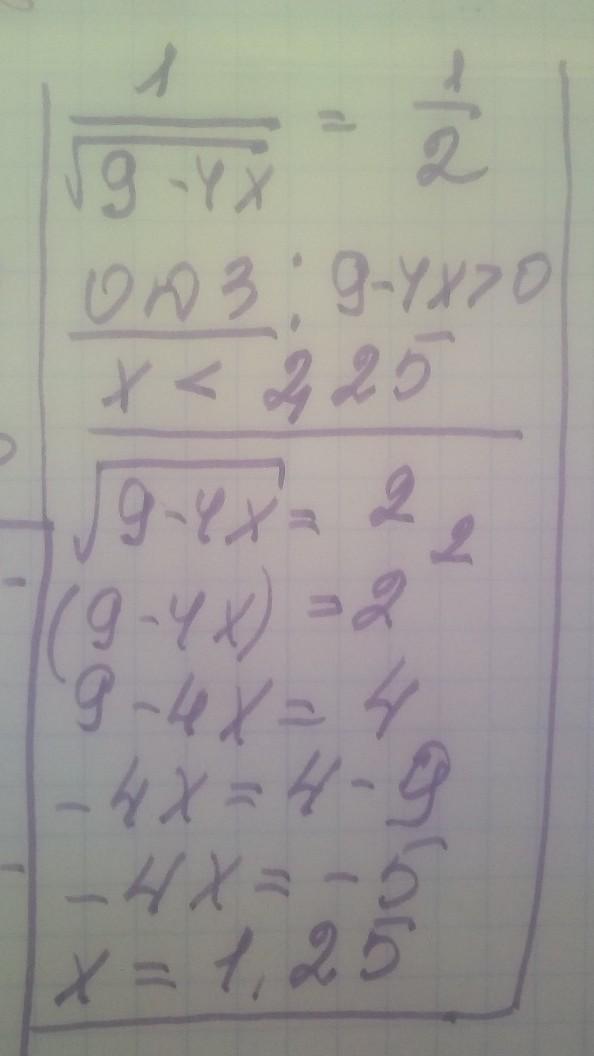 1/√(9-4x) = 1/2
ОДЗ: 9-4x>0
x < 2,25
√(9-4x) = 2
(9-4x) = 2²
9-4x = 4
-4x = 4-9
-4x = -5
x = 1,25